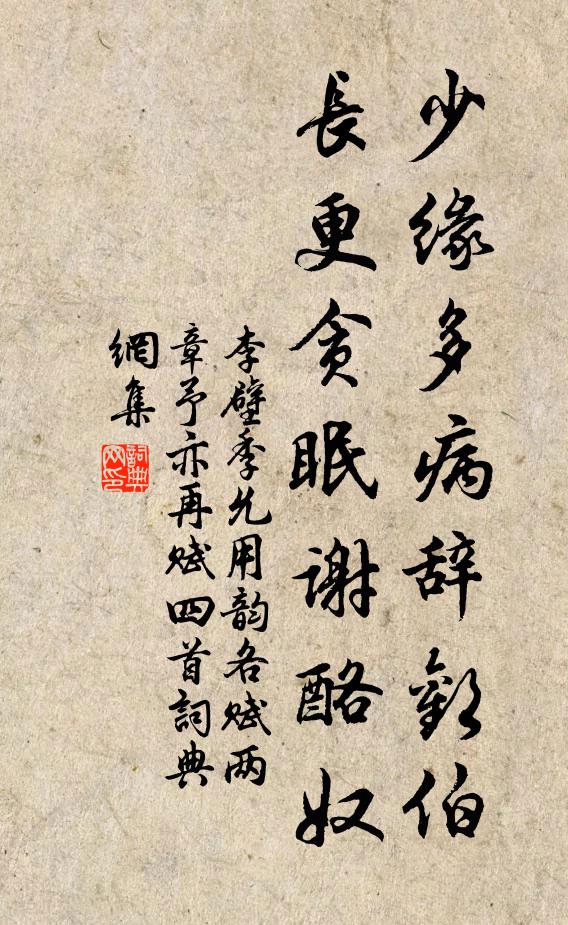 少緣多病辞歡伯
長更貪眠謝酪奴
李壁季允用韵各賦两
章予亦再賦四首詞典
網集
詞典
网印